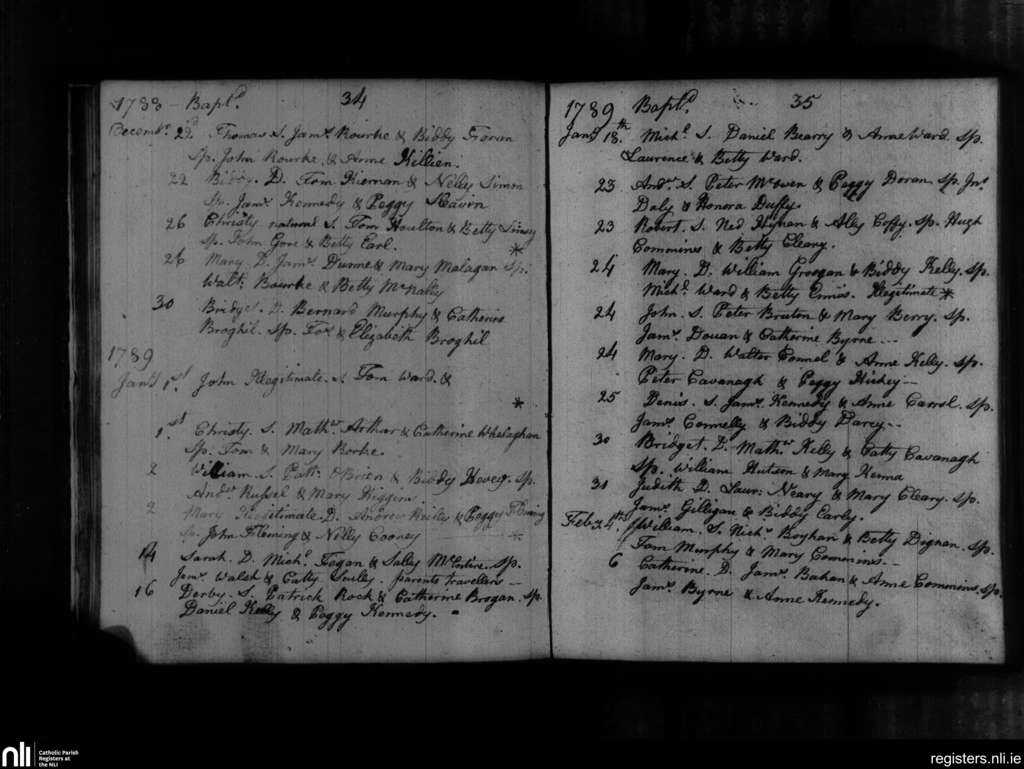 1788 - Bapt.d 34
Decemb.r 22.d Thomas S. Jam.s Rourke & Biddy
Sp. John Rourke. & Anne Killien.
22 Biddy. D. Tom Kiernan & Nelly Simon
Sp. Jam.s Kennedy & Peggy
26 Christy natural S. Tom Houlton & Betty
sp. John Gore & Betty Earl. *
26 Mary. D. Jam.s Dunne & Mary Malagan Sp.
Walt. Rourke & Betty McNally
30 Bridget. D. Bernard Murphy & Catherine
Broghil. Sp. & Elizabeth Broghil
1789
Jan.y 1.st John Illegitimate. S. Tom Ward. &
*
1.st Christy. S. Math.w Arthur & Catherine Whelaghan
Sp. Tom & Mary Rorke.
2 William. S. Patt: OBrien & Biddy Sp.
And.w Russel & Mary Higgins
2 Mary Illegitimate. D. Andrew Reily & Peggy Fleming
sp. John Fleming & Nelly Cooney *
14 Sarah. D. Mich.l Fagan & Sally McEntire. Sp.
Jam.s Walsh & Catty parents travellers —
16 Derby. S. Patrick Rock & Catherine Brogan. Sp.
Daniel Kelly & Peggy Kennedy. -
1789 Bapt.d 35
Jan.y 18.th Mich.l S. Daniel Bearry & Anne Ward. Sp.
Laurence & Betty Ward.
23 And.w S. Peter McOwen & Peggy Doran. Sp. Jn.o
Daly & Honora Duffy
23 Robert. S. Ned & Ally Coffy. Sp. Hugh
Commins & Betty Cleary.
24 Mary. D. William Groogan & Biddy Kelly. Sp.
Mich.l Ward & Betty Ennis. Illegitimate *
24 John. S. Peter Bruton & Mary Berry. Sp.
Jam.s Douan & Catherine Byrne ...
24 Mary. D. Walter Connel & Anne Kelly. Sp.
Peter Cavanagh & Peggy Hickey —
25 Denis. S. Jam.s Kennedy & Anne Carrol. Sp.
Jam.s Connelly & Biddy Darcy --
30 Bridget. D. Math.w Kelly & Catty Cavanagh
Sp. William Hutson & Mary Kenna
31 Judith D. Laur: Neary & Mary Cleary. Sp.
Jam.s Gilligan & Biddy Early.
Feb. 4th William. S. Nich.s Boyhan & Betty Dignan. Sp.
Tom Murphy & Mary Commins. -
6 Catherine. D. Jam.s Bahan & Anne Commons. Sp.
Jam.s Byrne & Anne Kennedy.
nli Catholic Parish
Registers at
the NLI
registers.nli.ie